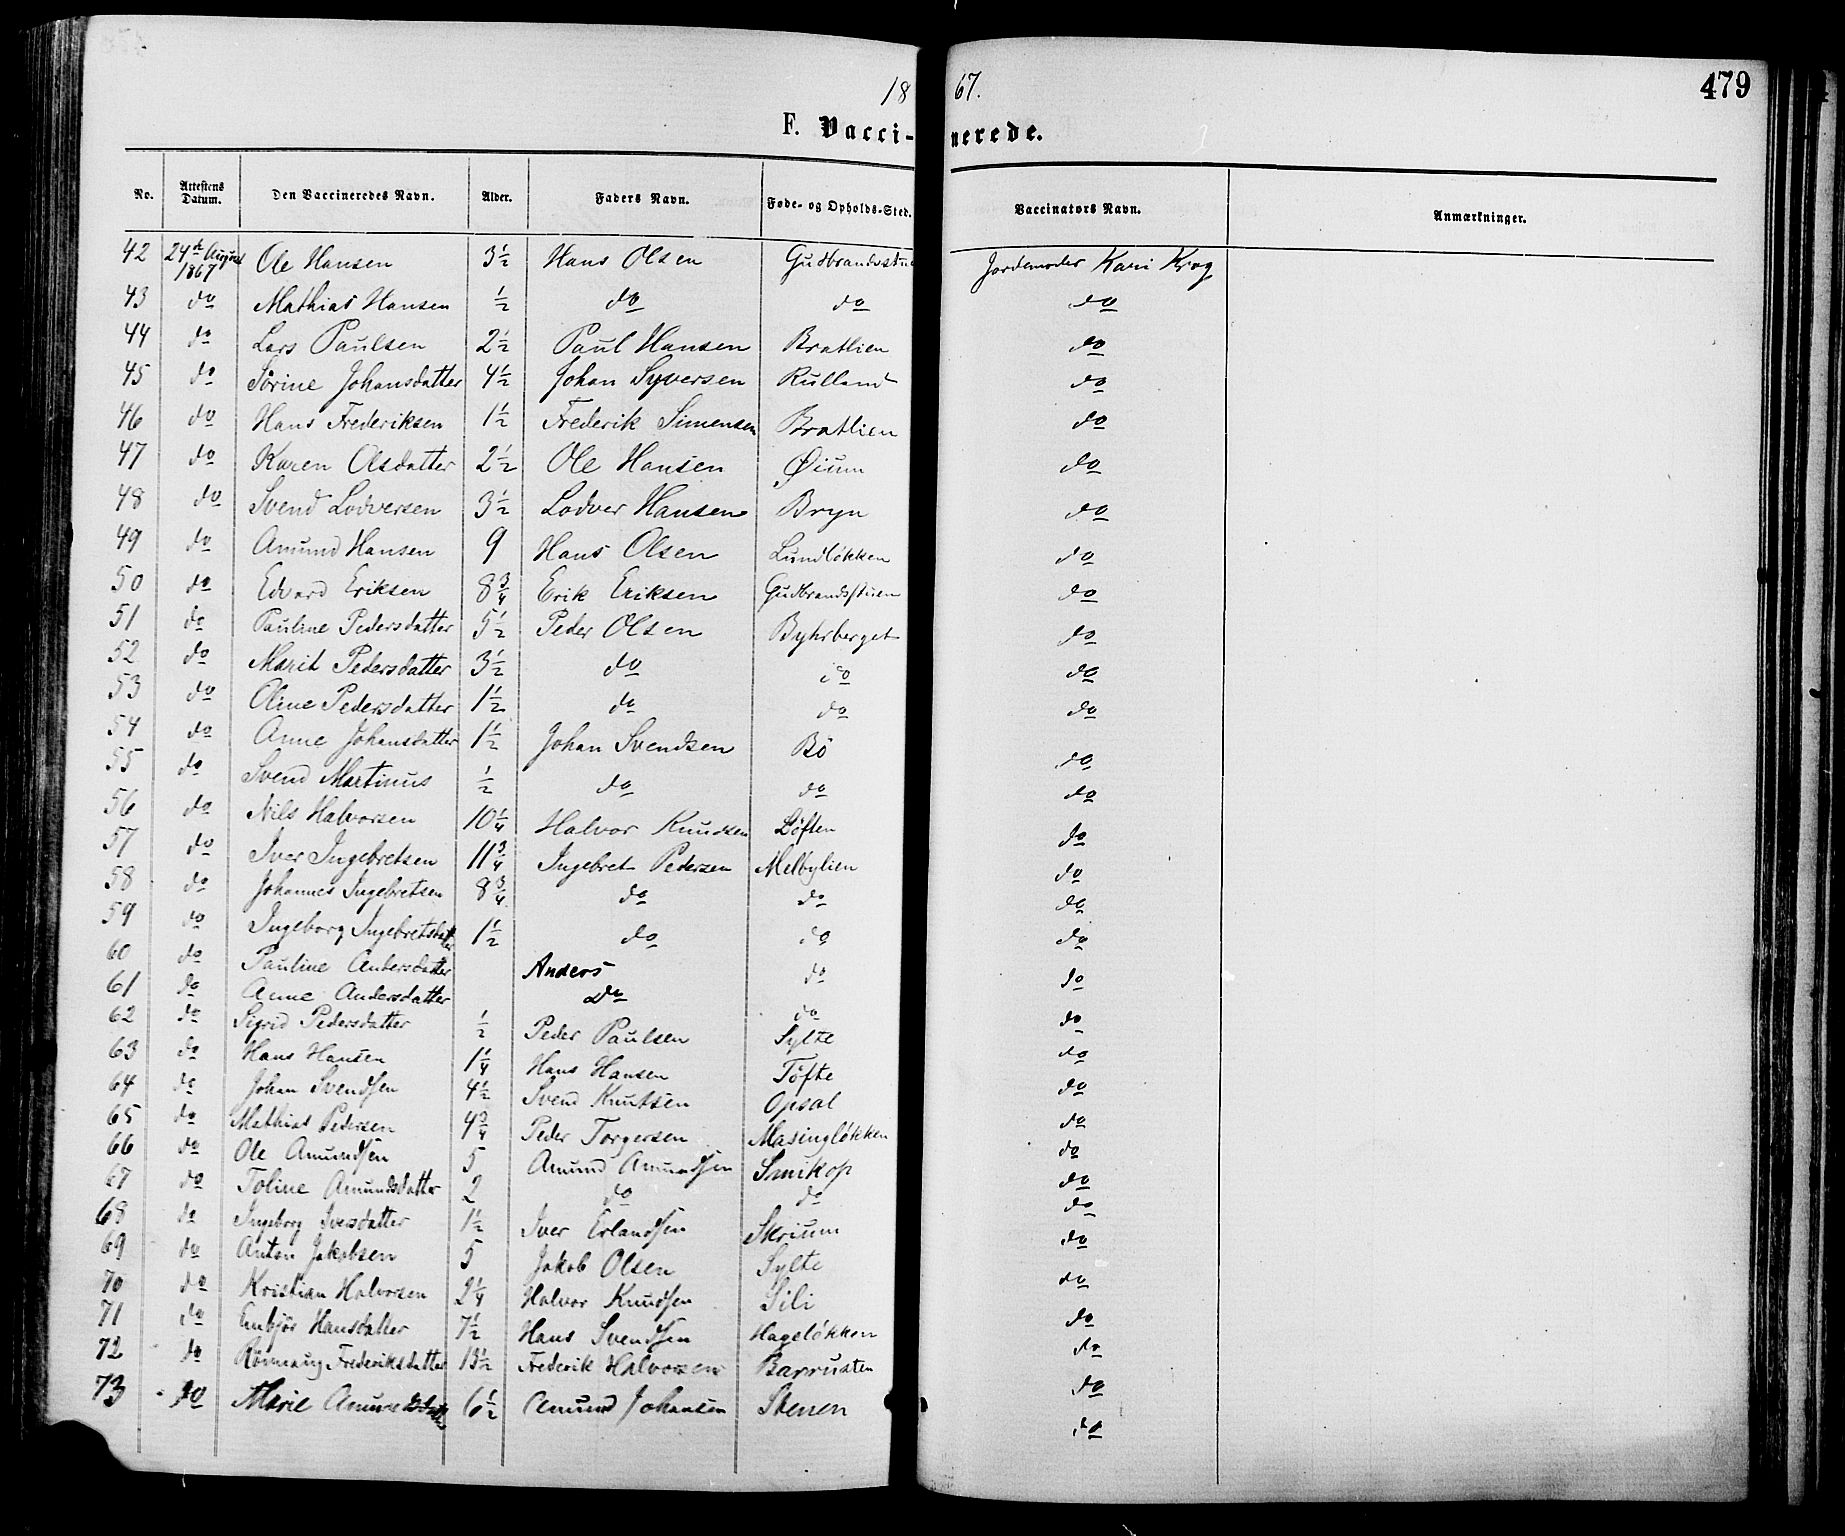 1867.
479
F. Vaccinerede.
No. Attestens Datum. Den Vaccineredes Navn. Alder. Faders Navn. Føde- og Opholds-Sted. Vaccinators Navn. Anmærkninger.
42 24de August 1867 Ole Hansen 3½ Hans Olsen Gudbrandsstu Jordemoder Kari Krog
43 do Mathias Hansen ½ do do do
44 do Lars Paulsen 2½ Paul Hansen Bratlien do
45 do Sørine Johansdatter 4½ Johan Syversen Rulland do
46 do Hans Frederiksen 1½ Frederik Simensen Bratlien do
47 do Karen Olsdatter 2½ Ole Hansen Øium do
48 do Svend Lodversen 3½ Lodver Hansen Bryn do
49 do Amund Hansen 9 Hans Olsen Lundløkken do
50 do Edvard Eriksen 8¾ Erik Eriksen Gudbrandsstuen do
51 do Pauline Pedersdatter 5½ Peder Olsen Byhrberget do
52 do Marit Pedersdatter 3½ do do do
53 do Oline Pedersdatter 1½ do do do
54 do Anne Johansdatter 1½ Johan Svendsen Bö do
55 do Svend Martinus ½ do do do
56 do Nils Halvorsen 10¼ Halvor Knudsen Løften do
57 do Iver Ingebretsen 11¾ Ingebret Pedersen Melbylien do
58 do Johannes Ingebretsen 8¾ do do do
59 do Ingeborg Ingebretsdatter 1½ do do do
60 do Pauline Andersdatter Anders do do
61 do Anne Andersdatter Do do do
62 do Sigrid Pedersdatter ½ Peder Paulsen Sylte do
63 do Hans Hansen 1¼ Hans Hansen Töfte do
64 do Johan Svendsen 4½ Svend Knutsen Opsal do
65 do Mathias Pedersen 4¾ Peder Torgersen Masingløkken do
66 do Ole Amundsen 5 Amund Amundsen Smikop do
67 do Toline Amundsdatter 2 do do do
68 do Ingeborg Iversdatter 1½ Iver Erlandsen Skrium do
69 do Anton Jakobsen 5 Jakob Olsen Sylte do
70 do Kristian Halvorsen 2¼ Halvor Knudsen Sili do
71 do Embjør Hansdatter 7½ Hans Svendsen Hageløkken do
72 do Rönnaug Frederiksdatter 13½ Frederik Halvorsen Barrusten do
73 do Marie Amundsdatt 6½ Amund Johansen Stenen do